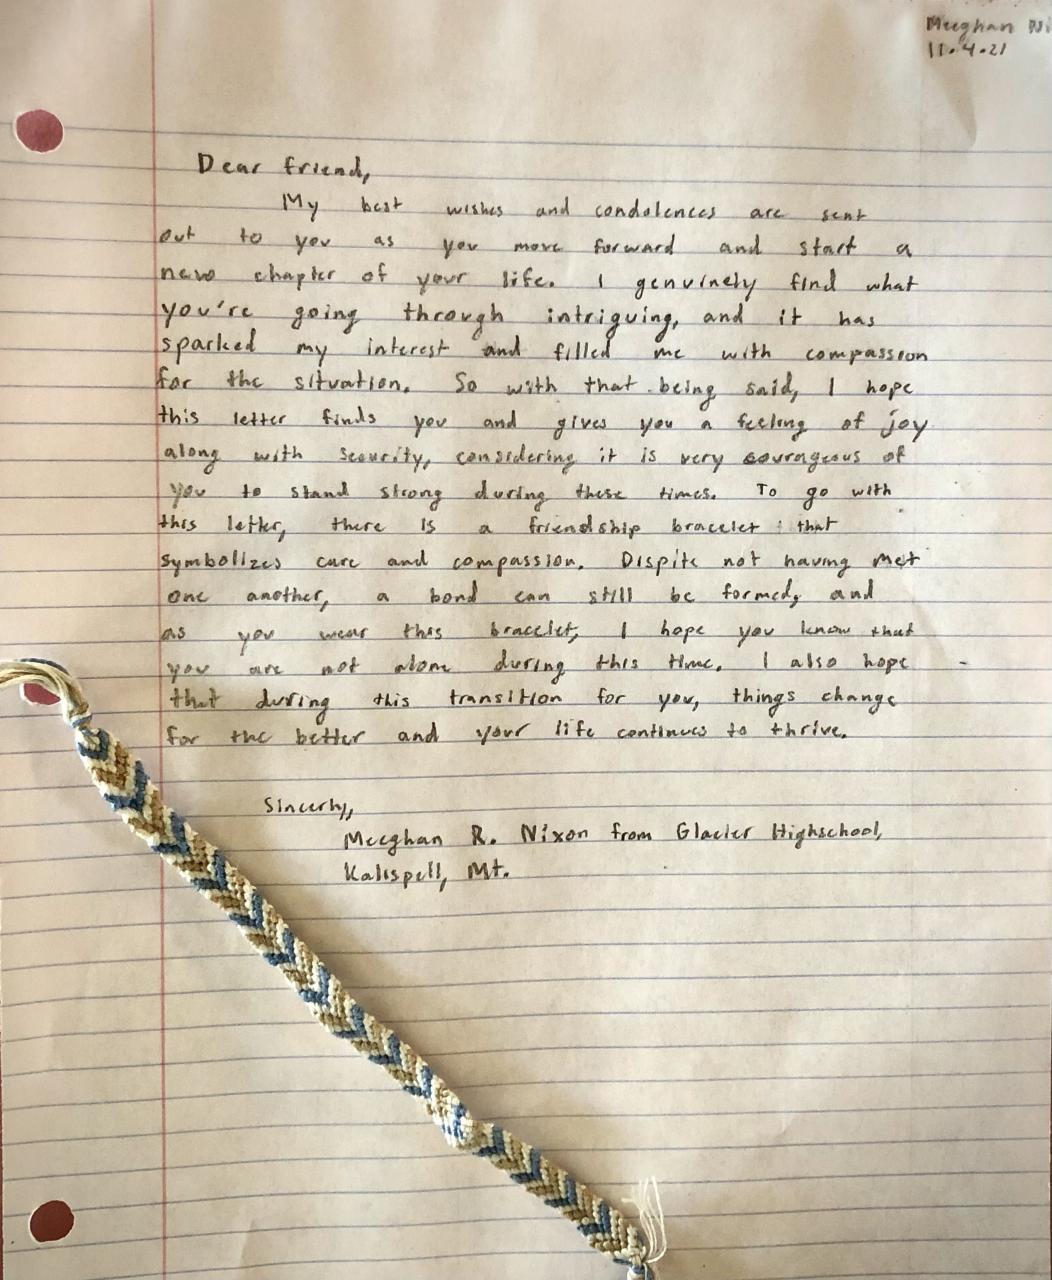 Meeghan Ni
11.4.21
Dear friend,
My best wishes and condolences are sent
out to you as you move forward and start a
new chapter of your life. I genuinely find what
you're going through intriguing, and it has
sparked my interest and filled me with compassion
for the situation. So with that being said, I hope
this letter finds you and gives you a feeling of joy
along with security, considering it is very courageous of
you to stand strong during these times. To go with
this letter, there is a friendship bracelet that
symbolizes care and compassion. Dispite not having met
one another, a bond can still be formed, and
as you wear this bracelet, I hope you know that
you are not alone during this time. I also hope
that during this transition for you, things change
for the better and your life continues to thrive.
Sincerly,
Meeghan R. Nixon from Glacier Highschool,
Kalispell, Mt.